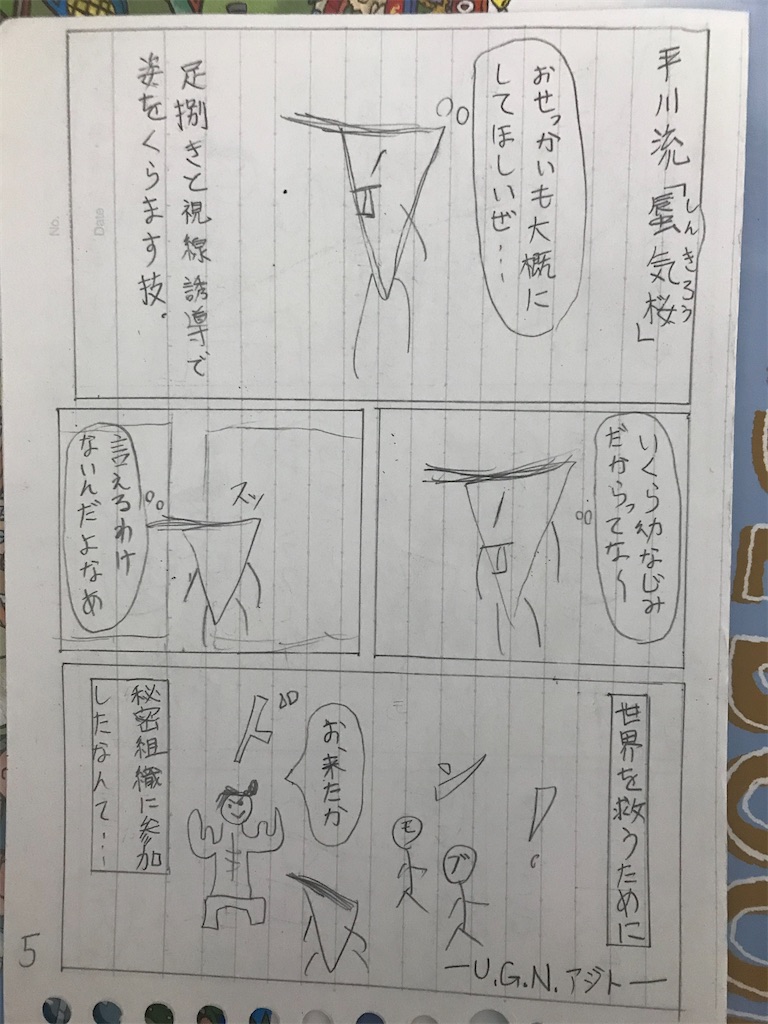 平川流「蜃気桜」
しんきろう
おせっかいも大概に
してほしいぜ…
足捌きと視線誘導で
姿をくらます技.
いくら幼なじみ
だからってな〜
スッ
言えるわけ
ないんだよなあ
世界を救うために
ドン!
モ
ブ
お、来たか
秘密組織に参加
したなんて…
ーU.G.N.アジトー
5
No.
Date